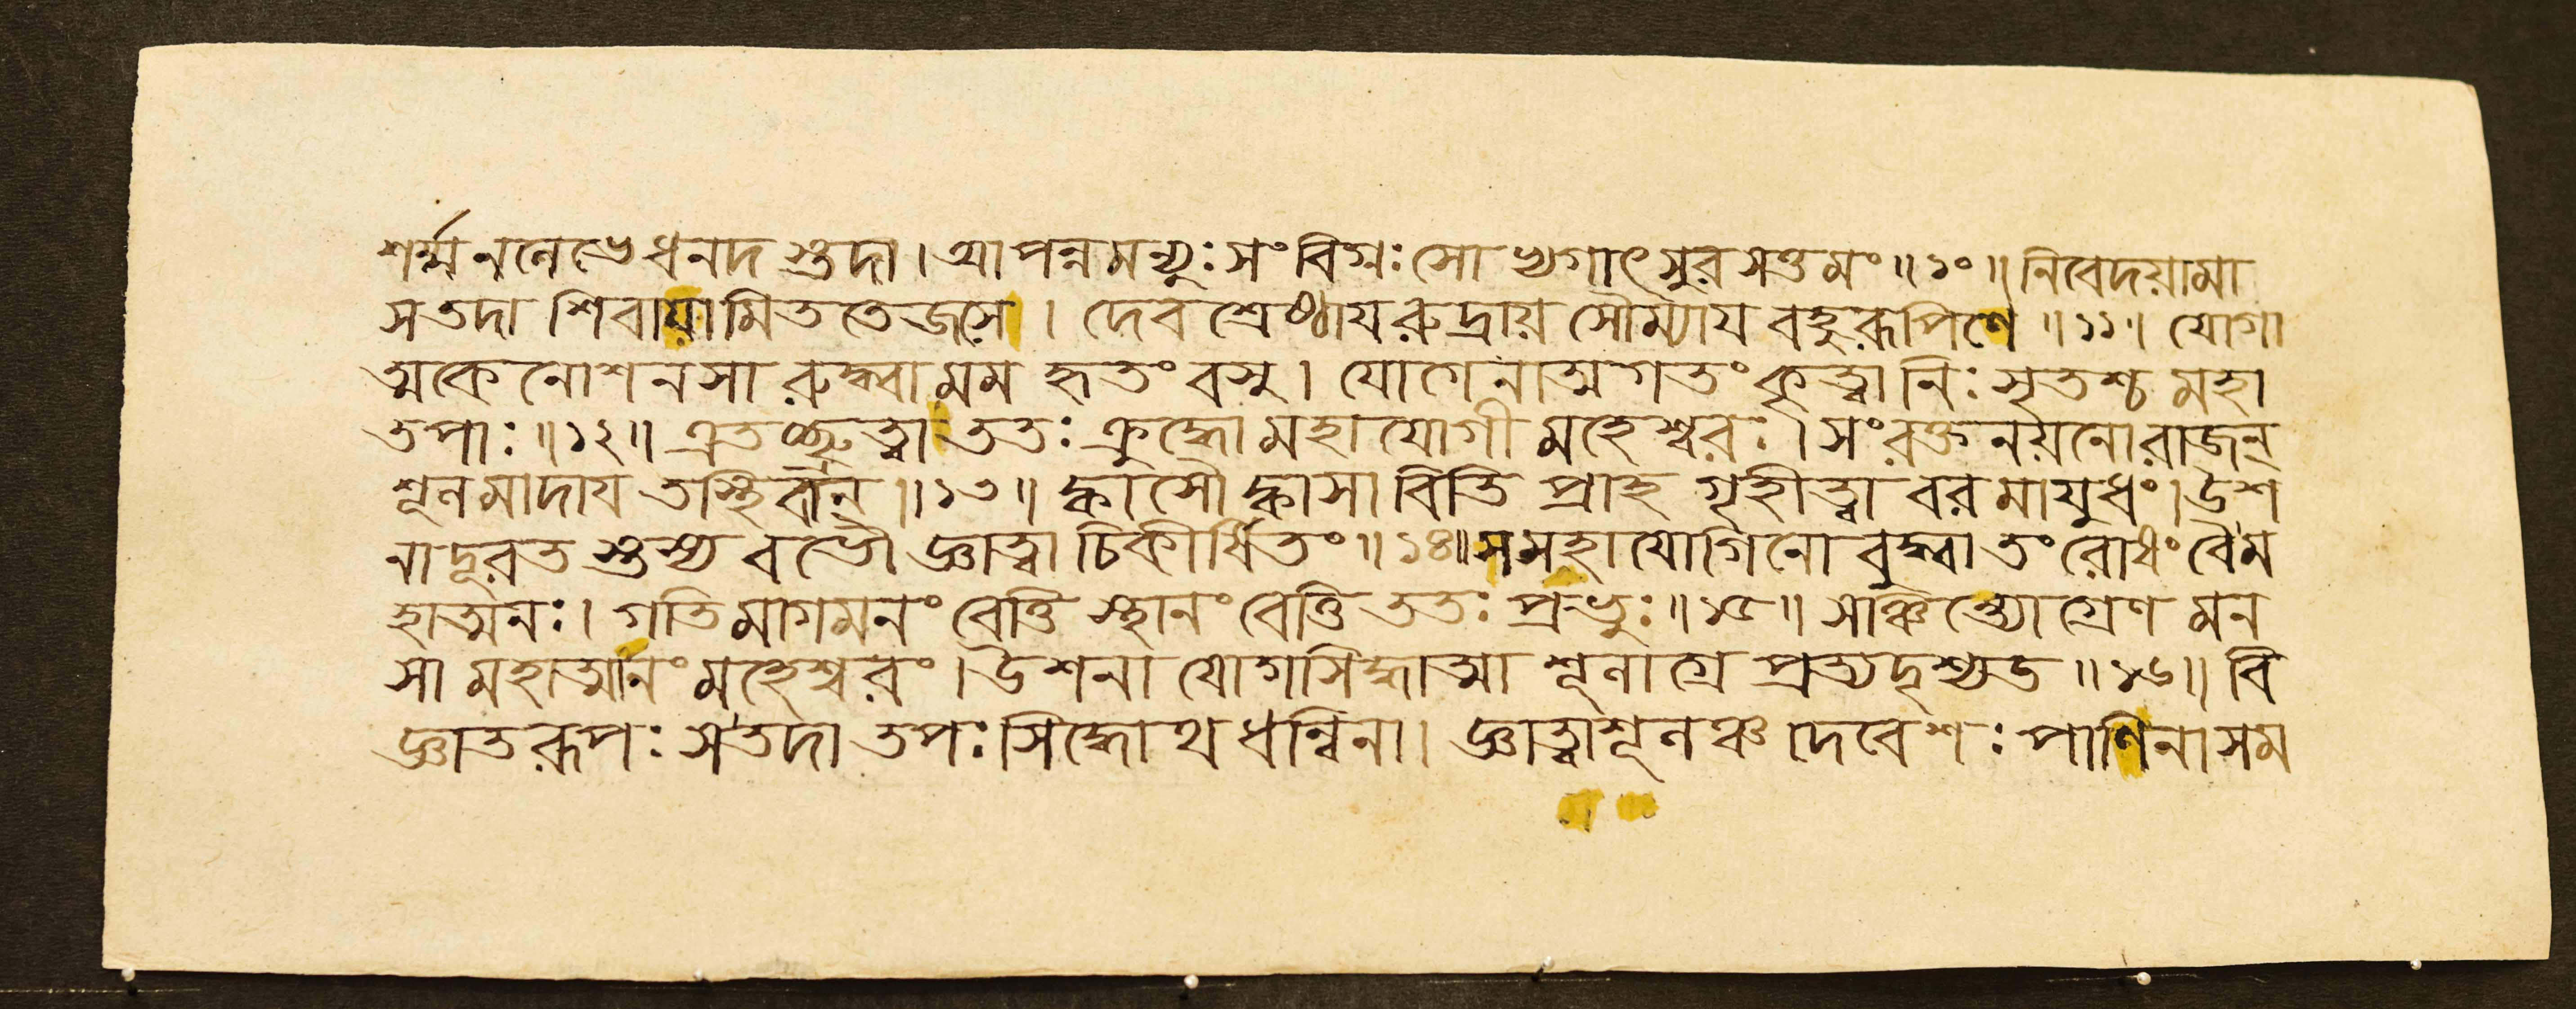 শর্ম্ম ন লেভে ধনদ স্তদা। আপন্নমন্যুঃ সংবিগ্নঃ সোভ্যগাৎ সুরসত্তমং॥১০॥ নিবেদয়ামা
স তদা শিবায়ামিততেজসে। দেবশ্রেষ্ঠায রুদ্রায় সৌম্যায বহুরূপিণে॥১১॥ যোগা
ত্মকেনোশনসা রুদ্ধ্বা মম হৃতং বসু। যোগেনাত্মগতং কৃত্বা নিঃসৃতশ্চ মহা
তপাঃ॥১২॥ এতচ্ছ্রুত্বা ততঃ ক্রুদ্ধো মহাযোগী মহেশ্বরঃ। সংরক্তনয়নো রাজন্
শূলমাদায তস্থিবান্॥১৩॥ ক্কাসৌ ক্কাসাবিতি প্রাহ গৃহীত্বা বরমাযুধং। উশ
না দূরতস্তস্য বভৌ জ্ঞাত্বা চিকীর্ষিতং॥১৪॥ স মহাযোগিনো বুদ্ধ্বা তং রোষং বৈ ম
হাত্মনঃ। গতিমাগমনং বেত্তি স্থানং বেত্তি ততঃ প্রভুঃ॥১৫॥ সঞ্চিন্ত্যোগ্রেণ মন
সা মহাত্মানং মহেশ্বরং। উশনা যোগসিদ্ধাত্মা শূলাগ্রে প্রত্যদৃশ্যত॥১৬॥ বি
জ্ঞাতরূপঃ স তদা তপঃসিদ্ধোথ ধন্বিনা। জ্ঞাত্বা শূলঞ্চ দেবেশঃ পাণিনা সম